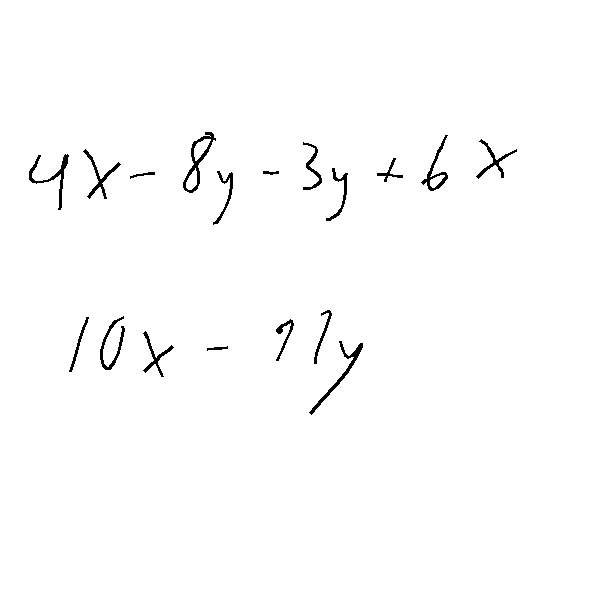 4x - 8y - 3y + 6x
10x - 11y